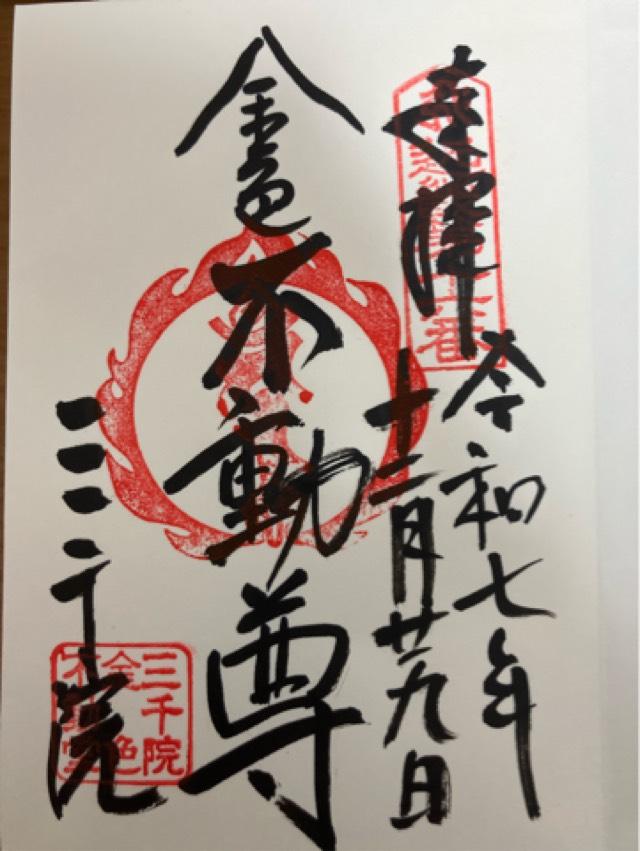 奉拝
令和七年
十二月廿九日
金色不動尊
三千院
三千院
金色
不動堂